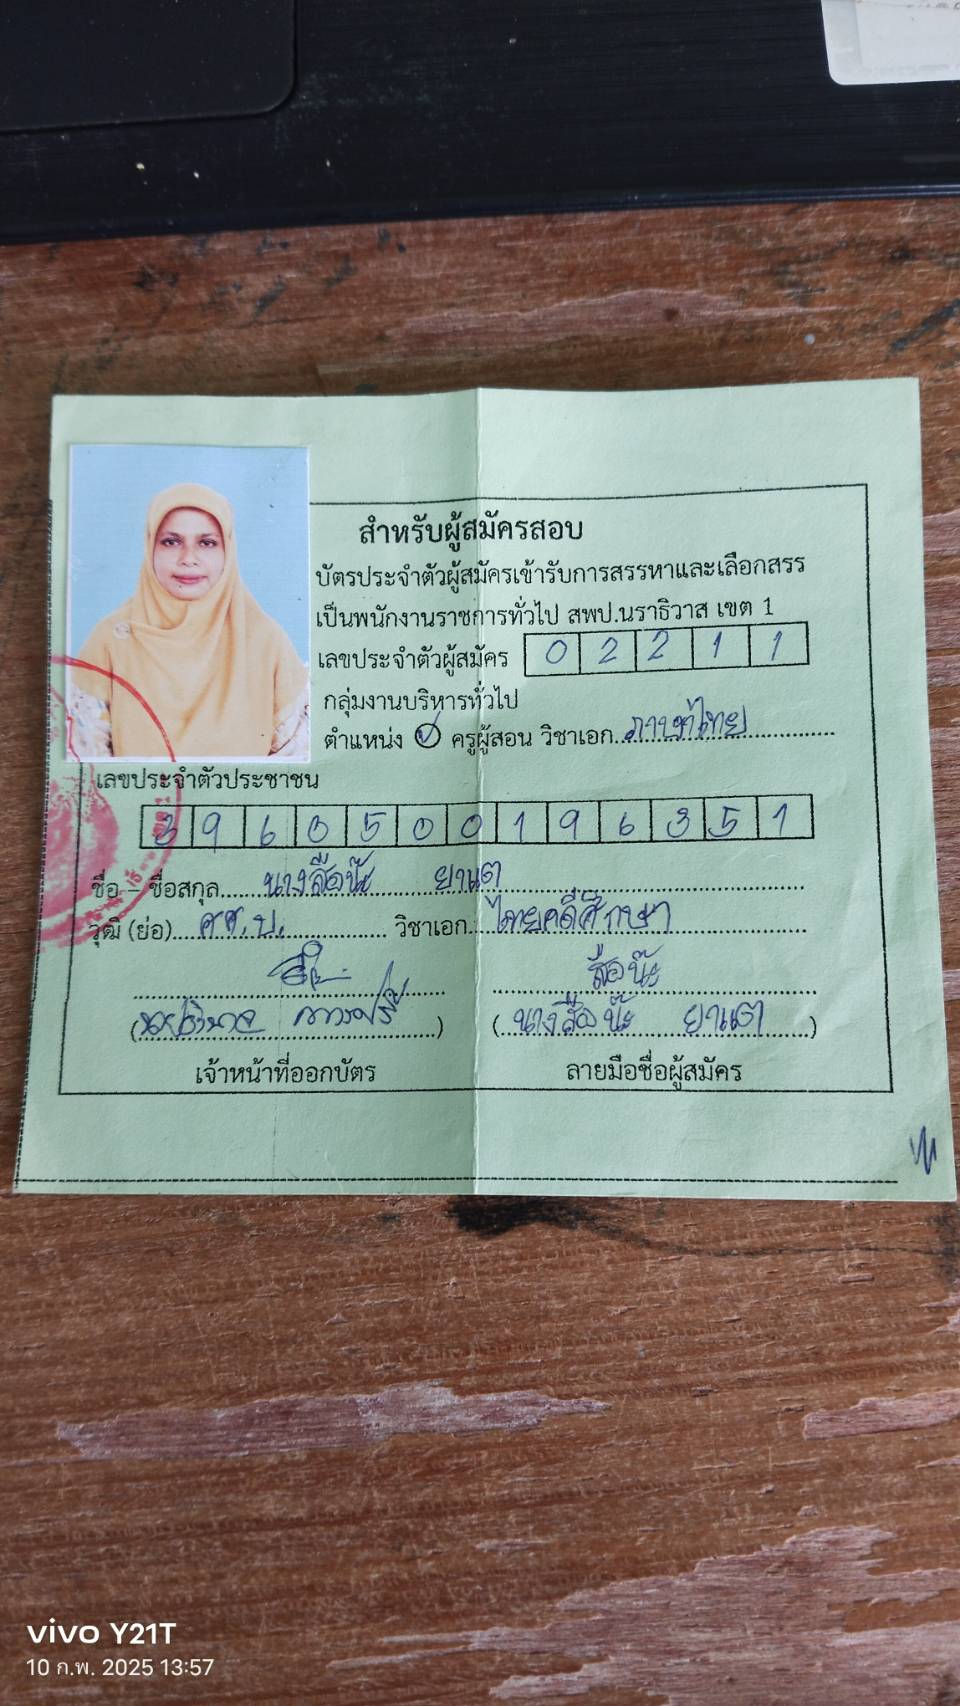 สำหรับผู้สมัครสอบ
บัตรประจำตัวผู้สมัครเข้ารับการสรรหาและเลือกสรร
เป็นพนักงานราชการทั่วไป สพป.นราธิวาส เขต 1
เลขประจำตัวผู้สมัคร 0 2 2 1 1
กลุ่มงานบริหารทั่วไป
ตำแหน่ง ครูผู้สอน วิชาเอก ภาษาไทย
เลขประจำตัวประชาชน
3 9 6 0 5 0 0 1 9 6 3 5 1
ชื่อ – ชื่อสกุล นางสือน๊ะ ยาแต
วุฒิ (ย่อ) ศศ.บ. วิชาเอก ไทยคดีศึกษา
สือน๊ะ
(นางสือน๊ะ ยาแต)
เจ้าหน้าที่ออกบัตร ลายมือชื่อผู้สมัคร
vivo Y21T
10 ก.พ. 2025 13:57